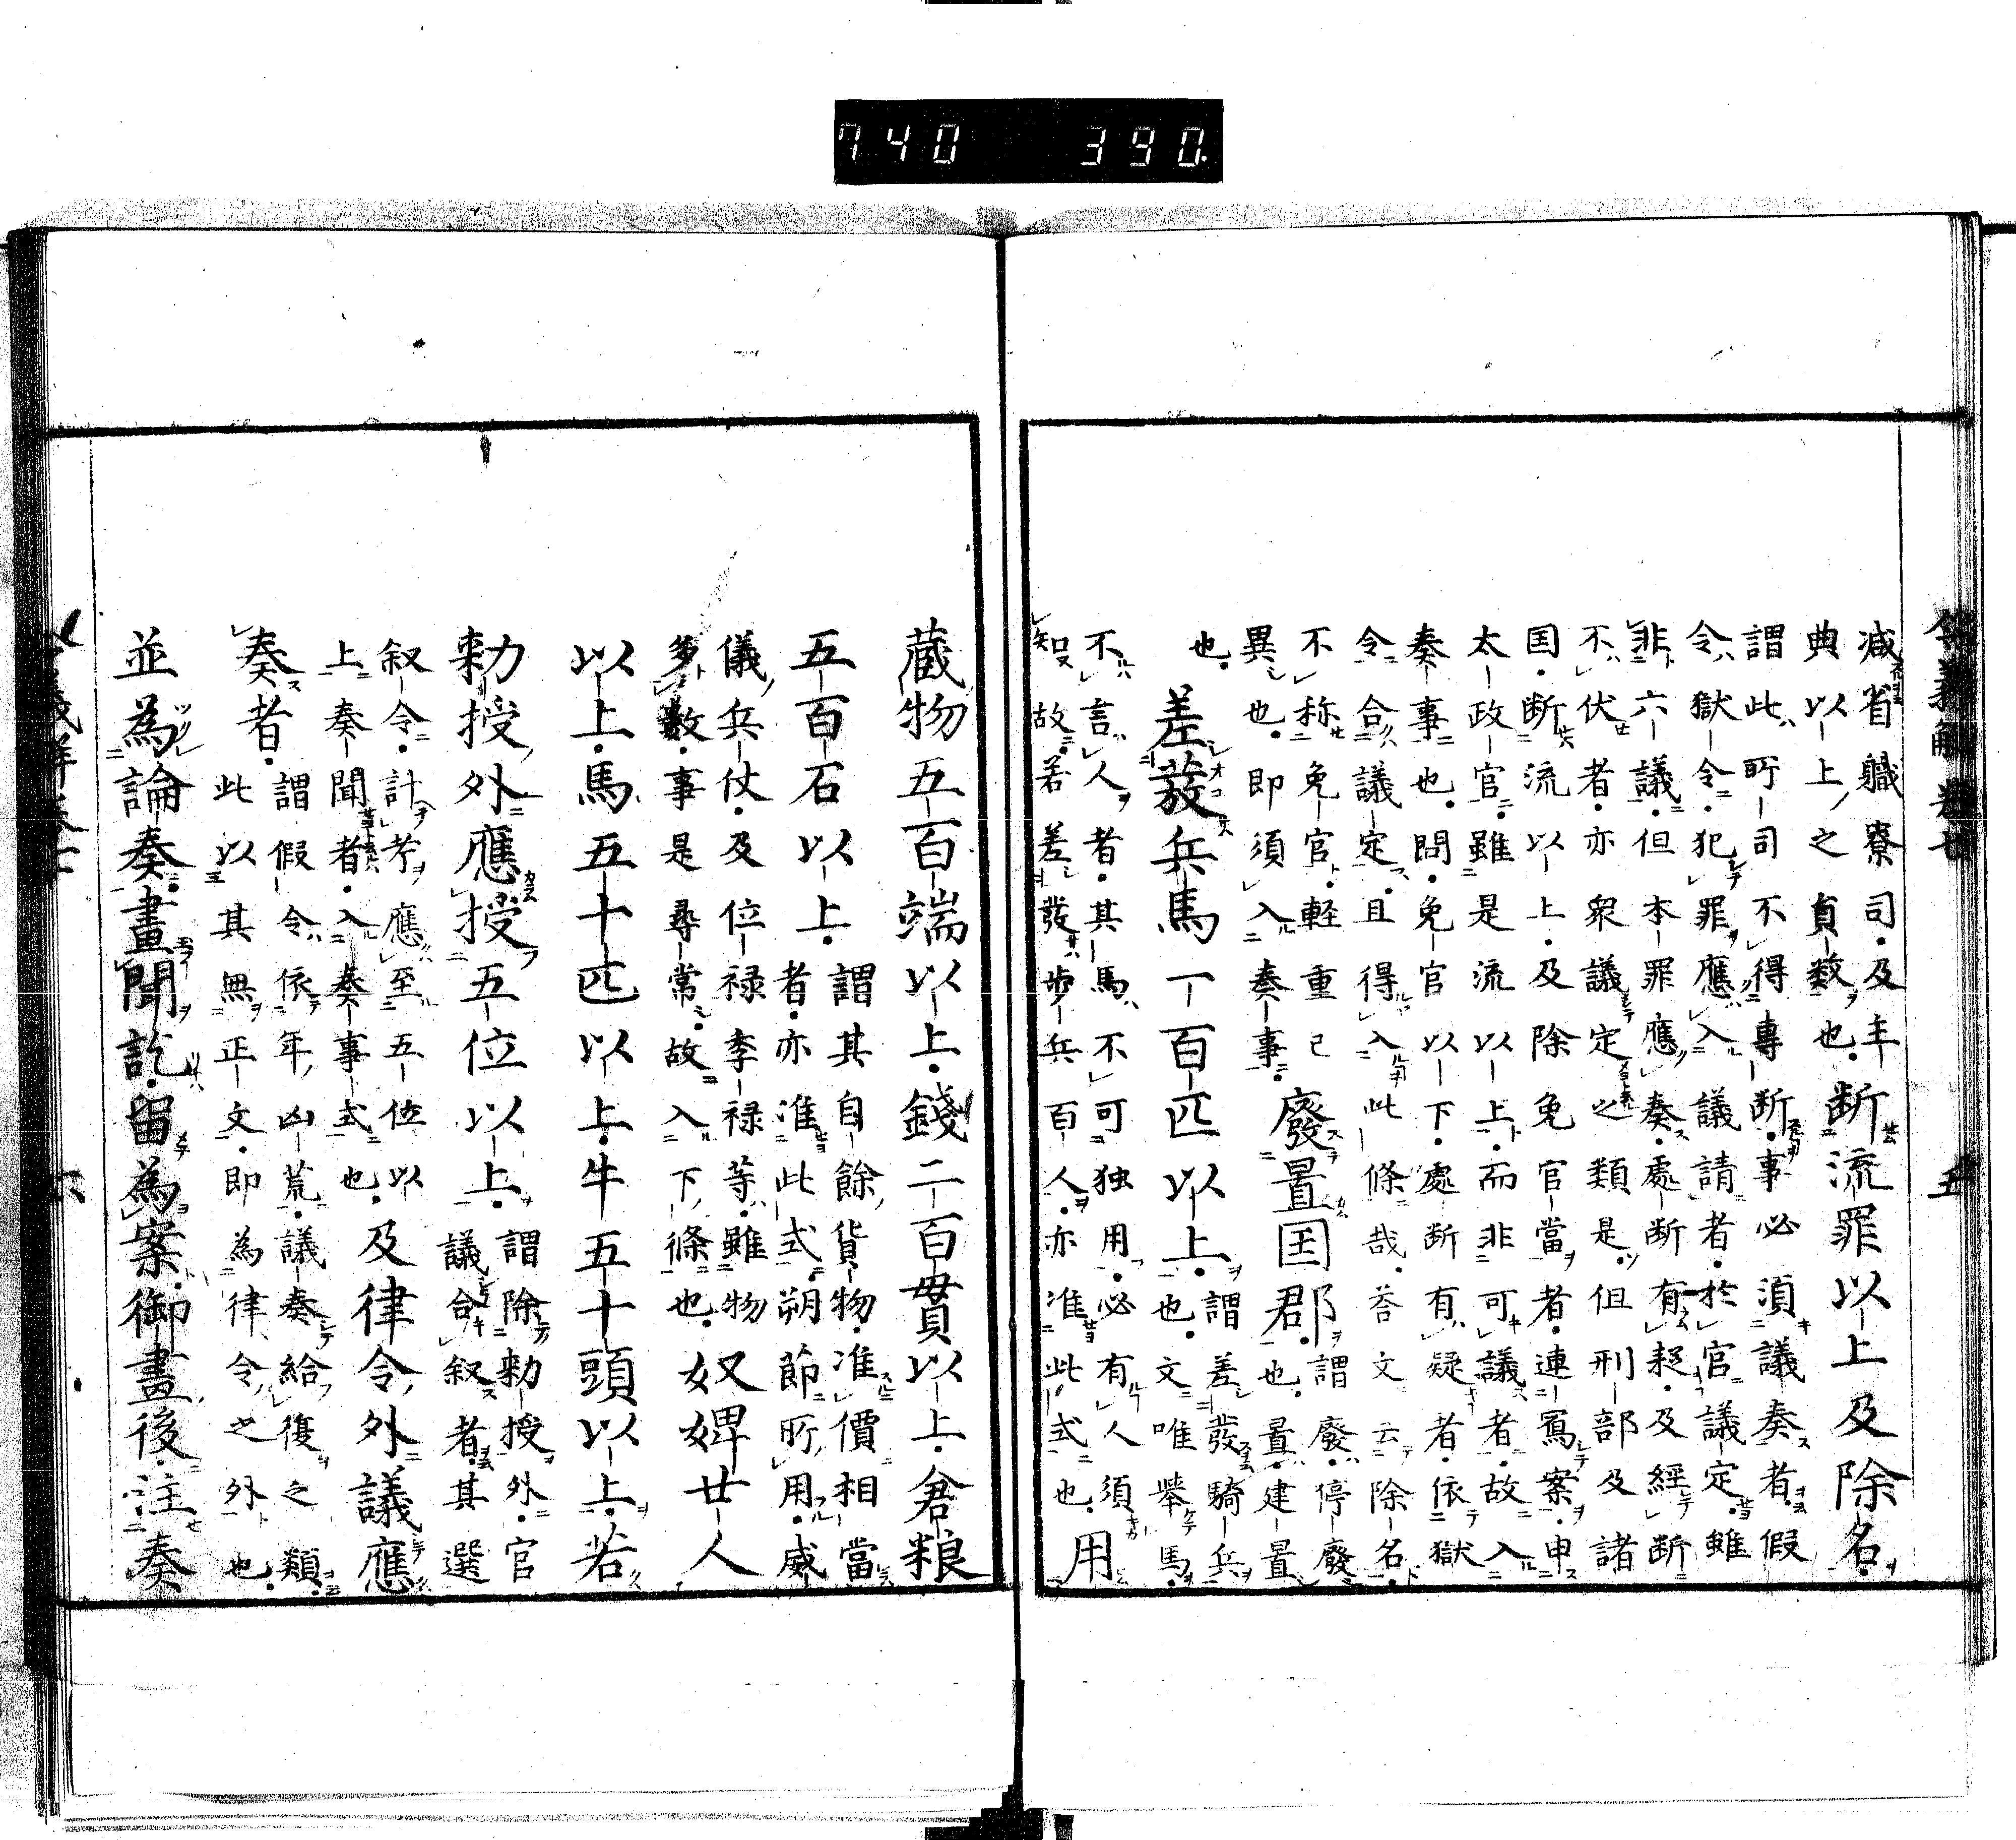 令義解 卷七 五
減省職寮司及主
典以上之員数也断流罪以上及除名
謂此所司不得専断事必須議奏者假
令獄令犯罪應入議請者於官議定雖
非六議但本罪應奏處断有疑及經断
不伏者亦衆議定之類是但刑部及諸
国断流以上及除免官當者連寫案申
太政官雖是流以上而非可議者故入
奏事也問免官以下處断有疑者依獄
令合議定且得入此條哉荅文云除名
不称免官軽重已
異也即須入奏事廢置国郡謂廢停廢
也置建置
也
差發兵馬一百匹以上謂差發騎兵
也文唯擧馬
不言人者其馬不可独用必有人須
知故若差發歩兵百人亦准此式也用
蔵物五百端以上錢二百貫以上倉粮
五百石以上謂其自餘貨物准價相當
者亦准此式朔節所用威
儀兵仗及位禄季禄等雖物
多数事是尋常故入下條也奴婢廿人
以上馬五十匹以上牛五十頭以上若
勅授外應授五位以上謂除勅授外官
議合叙者其選
叙令計考應至五位以
上奏聞者入奏事式也及律令外議應
奏者謂假令依年凶荒議奏給復之類
此以其無正文即為律令之外也
並為論奏畫聞訖留為案御畫後注奏
令義解卷七 六